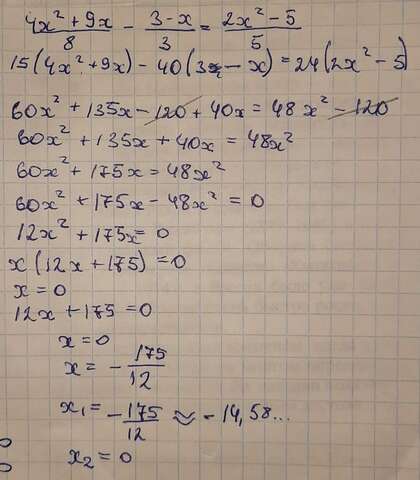 (4x² + 9x)/8 - (3-x)/3 = (2x² - 5)/5
15(4x² + 9x) - 40(3 - x) = 24(2x² - 5)
60x² + 135x - 120 + 40x = 48x² - 120
60x² + 135x + 40x = 48x²
60x² + 175x = 48x²
60x² + 175x - 48x² = 0
12x² + 175x = 0
x(12x + 175) = 0
x = 0
12x + 175 = 0
x = 0
x = - 175/12
x₁ = - 175/12 ≈ - 14,58...
x₂ = 0